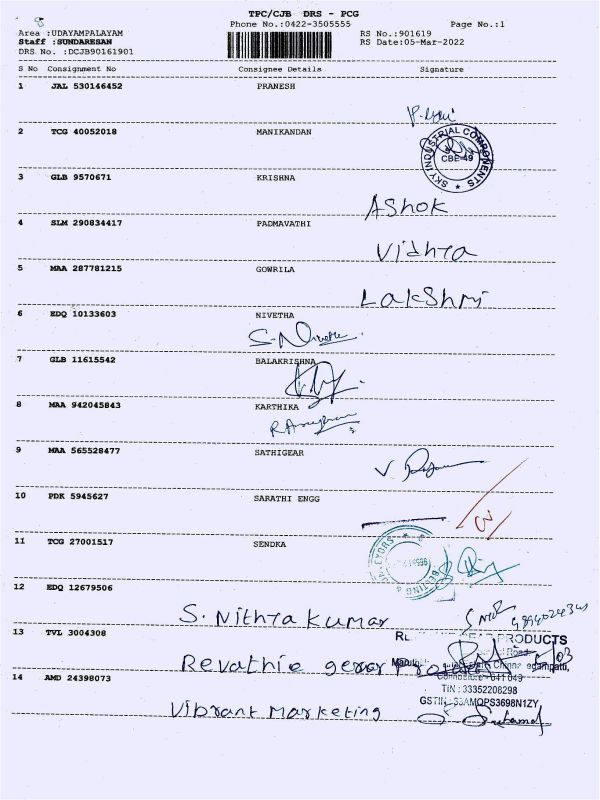 TPC/CJB DRS - PCG
Phone No.:0422-3505555
Page No.:1
Area :UDAYAMPALAYAM
RS No.:901619
Staff :SUNDARESAN
RS Date:05-Mar-2022
DRS No. :DCJB90161901
S No Consignment No Consignee Details Signature
1 JAL 530146452 PRANESH
2 TCG 40052018 MANIKANDAN
SKY INDUSTRIAL COMPONENTS
CBE-49
3 GLB 9570671 KRISHNA
Ashok
4 SLM 290834417 PADMAVATHI
Vidhya
5 MAA 287781215 GOWRILA
Lakshmi
6 EDQ 10133603 NIVETHA
S. Nivetha
7 GLB 11615542 BALAKRISHNA
8 MAA 942045843 KARTHIKA
9 MAA 565528477 SATHIGEAR
10 PDK 5945627 SARATHI ENGG
11 TCG 27001517 SENDKA
12 EDQ 12679506
S. Nithya kumar
13 TVL 3004308
PRODUCTS
Revathie gear Products
14 AMD 24398073
TIN : 33352208298
GSTIN : 33AMQPS3698N1ZY
Vibrant Marketing